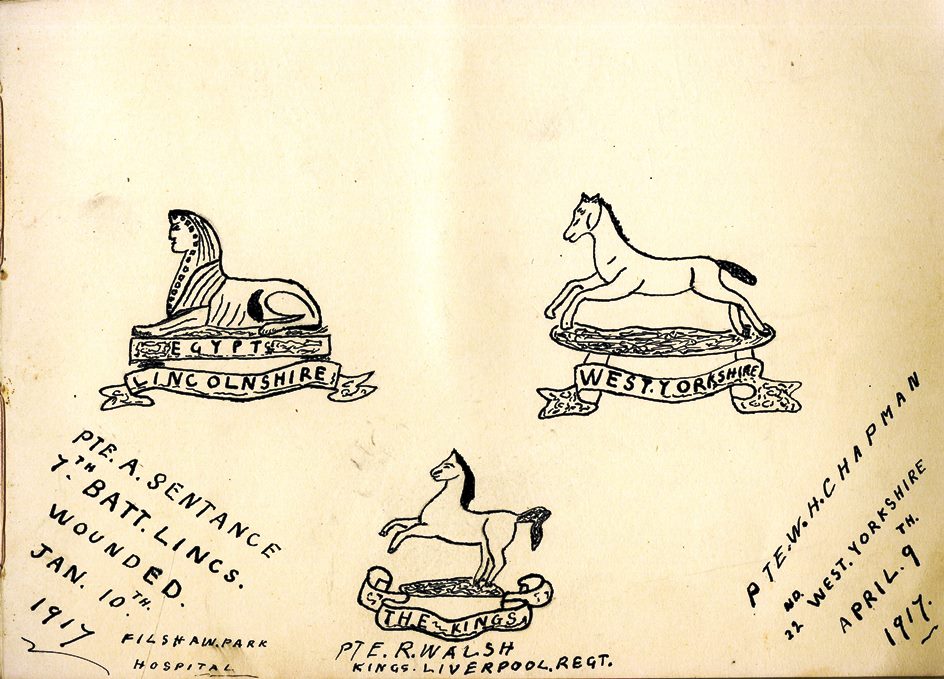 EGYPT
LINCOLNSHIRE
WEST.YORKSHIRE
THE KINGS
PTE. A. SENTANCE
7TH BATT. LINCS.
WOUNDED.
JAN. 10TH.
1917
FILSHAW.PARK
HOSPITAL
PTE. R. WALSH
KINGS. LIVERPOOL. REGT.
PTE. W. H. CHAPMAN
22ND. WEST. YORKSHIRE
APRIL. 9TH.
1917.